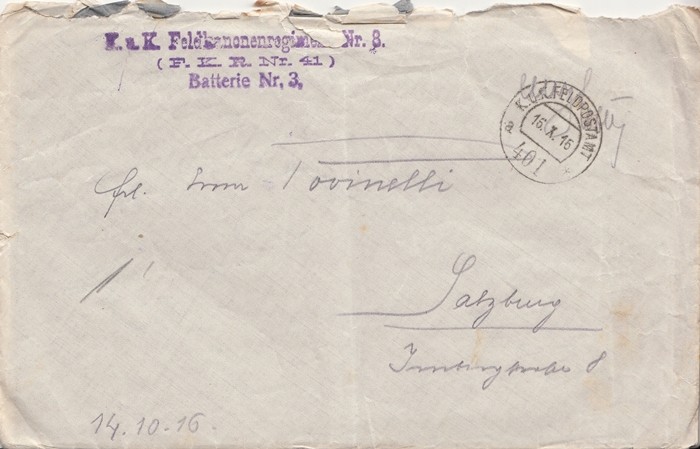 K. u. K. Feldkanonenregiment Nr. 8.
(F. K. R. Nr. 41)
Batterie Nr. 3.
K.u.K. FELDPOSTAMT
a 16.X.16 *
401
Frl. Povinelli
Salzburg
8
14.10-16.